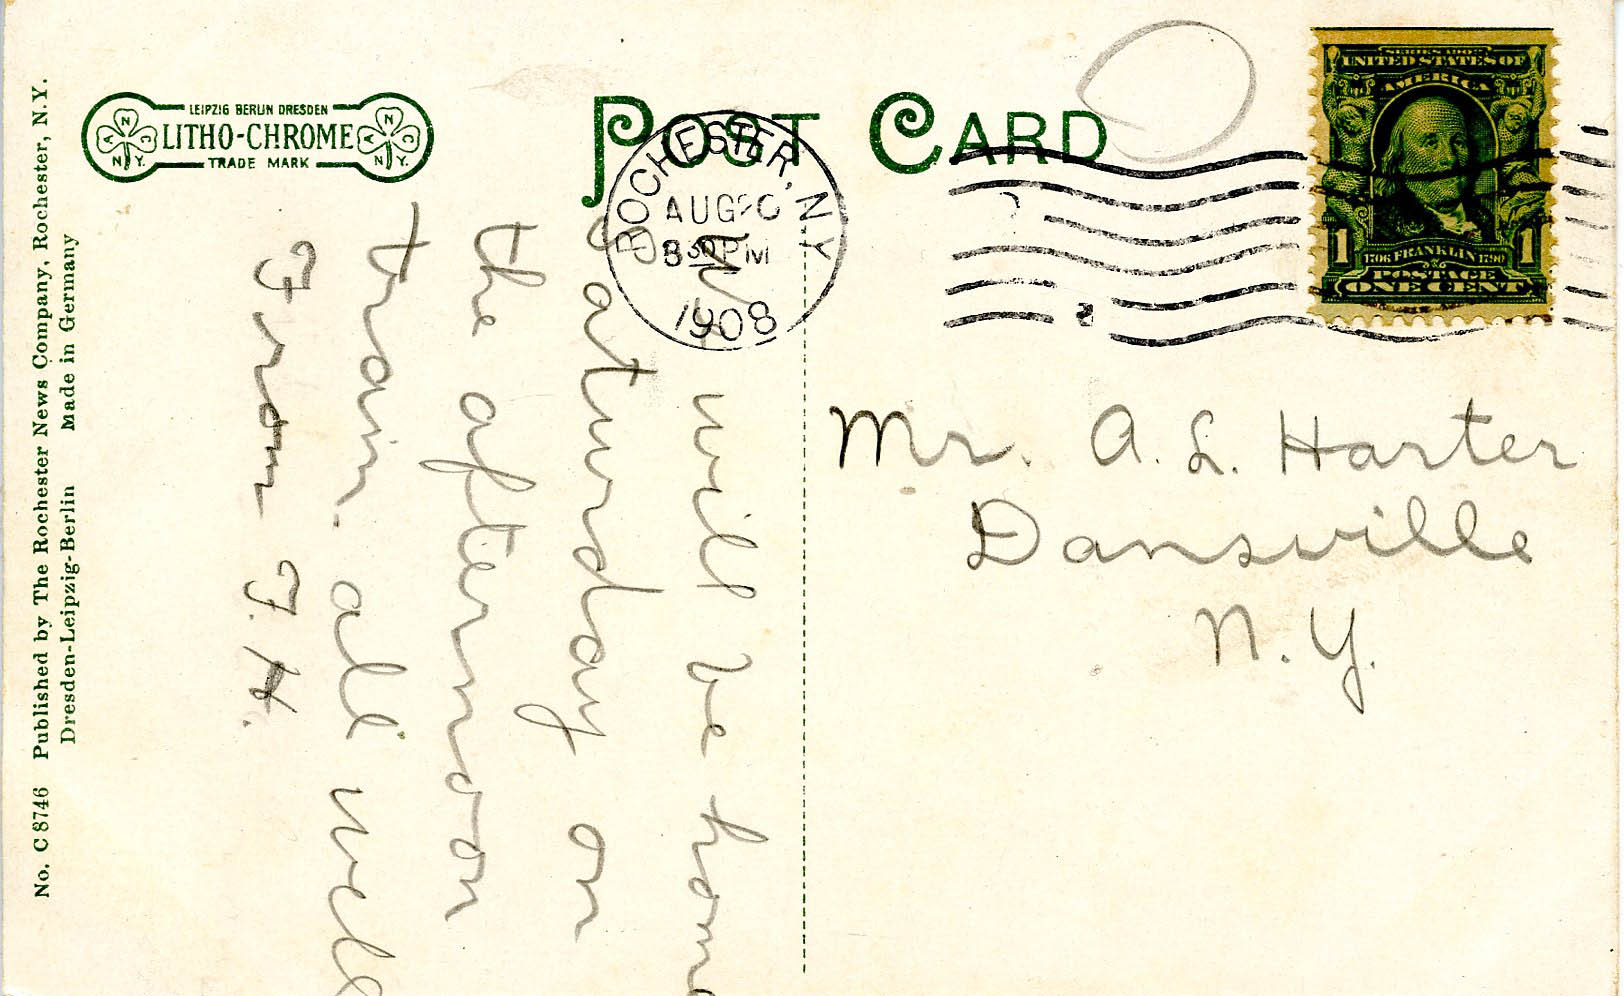 No. C 8746 Published by The Rochester News Company, Rochester, N. Y.
Dresden-Leipzig-Berlin Made in Germany
LEIPZIG BERLIN DRESDEN
LITHO-CHROME
TRADE MARK
N.Y.
N.Y.
POST CARD
ROCHESTER, N.Y.
AUG 20
8 30 PM
1908
SERIES 1902
UNITED STATES OF
AMERICA
1 1706 FRANKLIN 1790 1
POSTAGE
ONE CENT
will be home
Saturday on
the afternoon
train. all well
From F. H.
Mr. A. L. Harter
Dansville
N. Y.